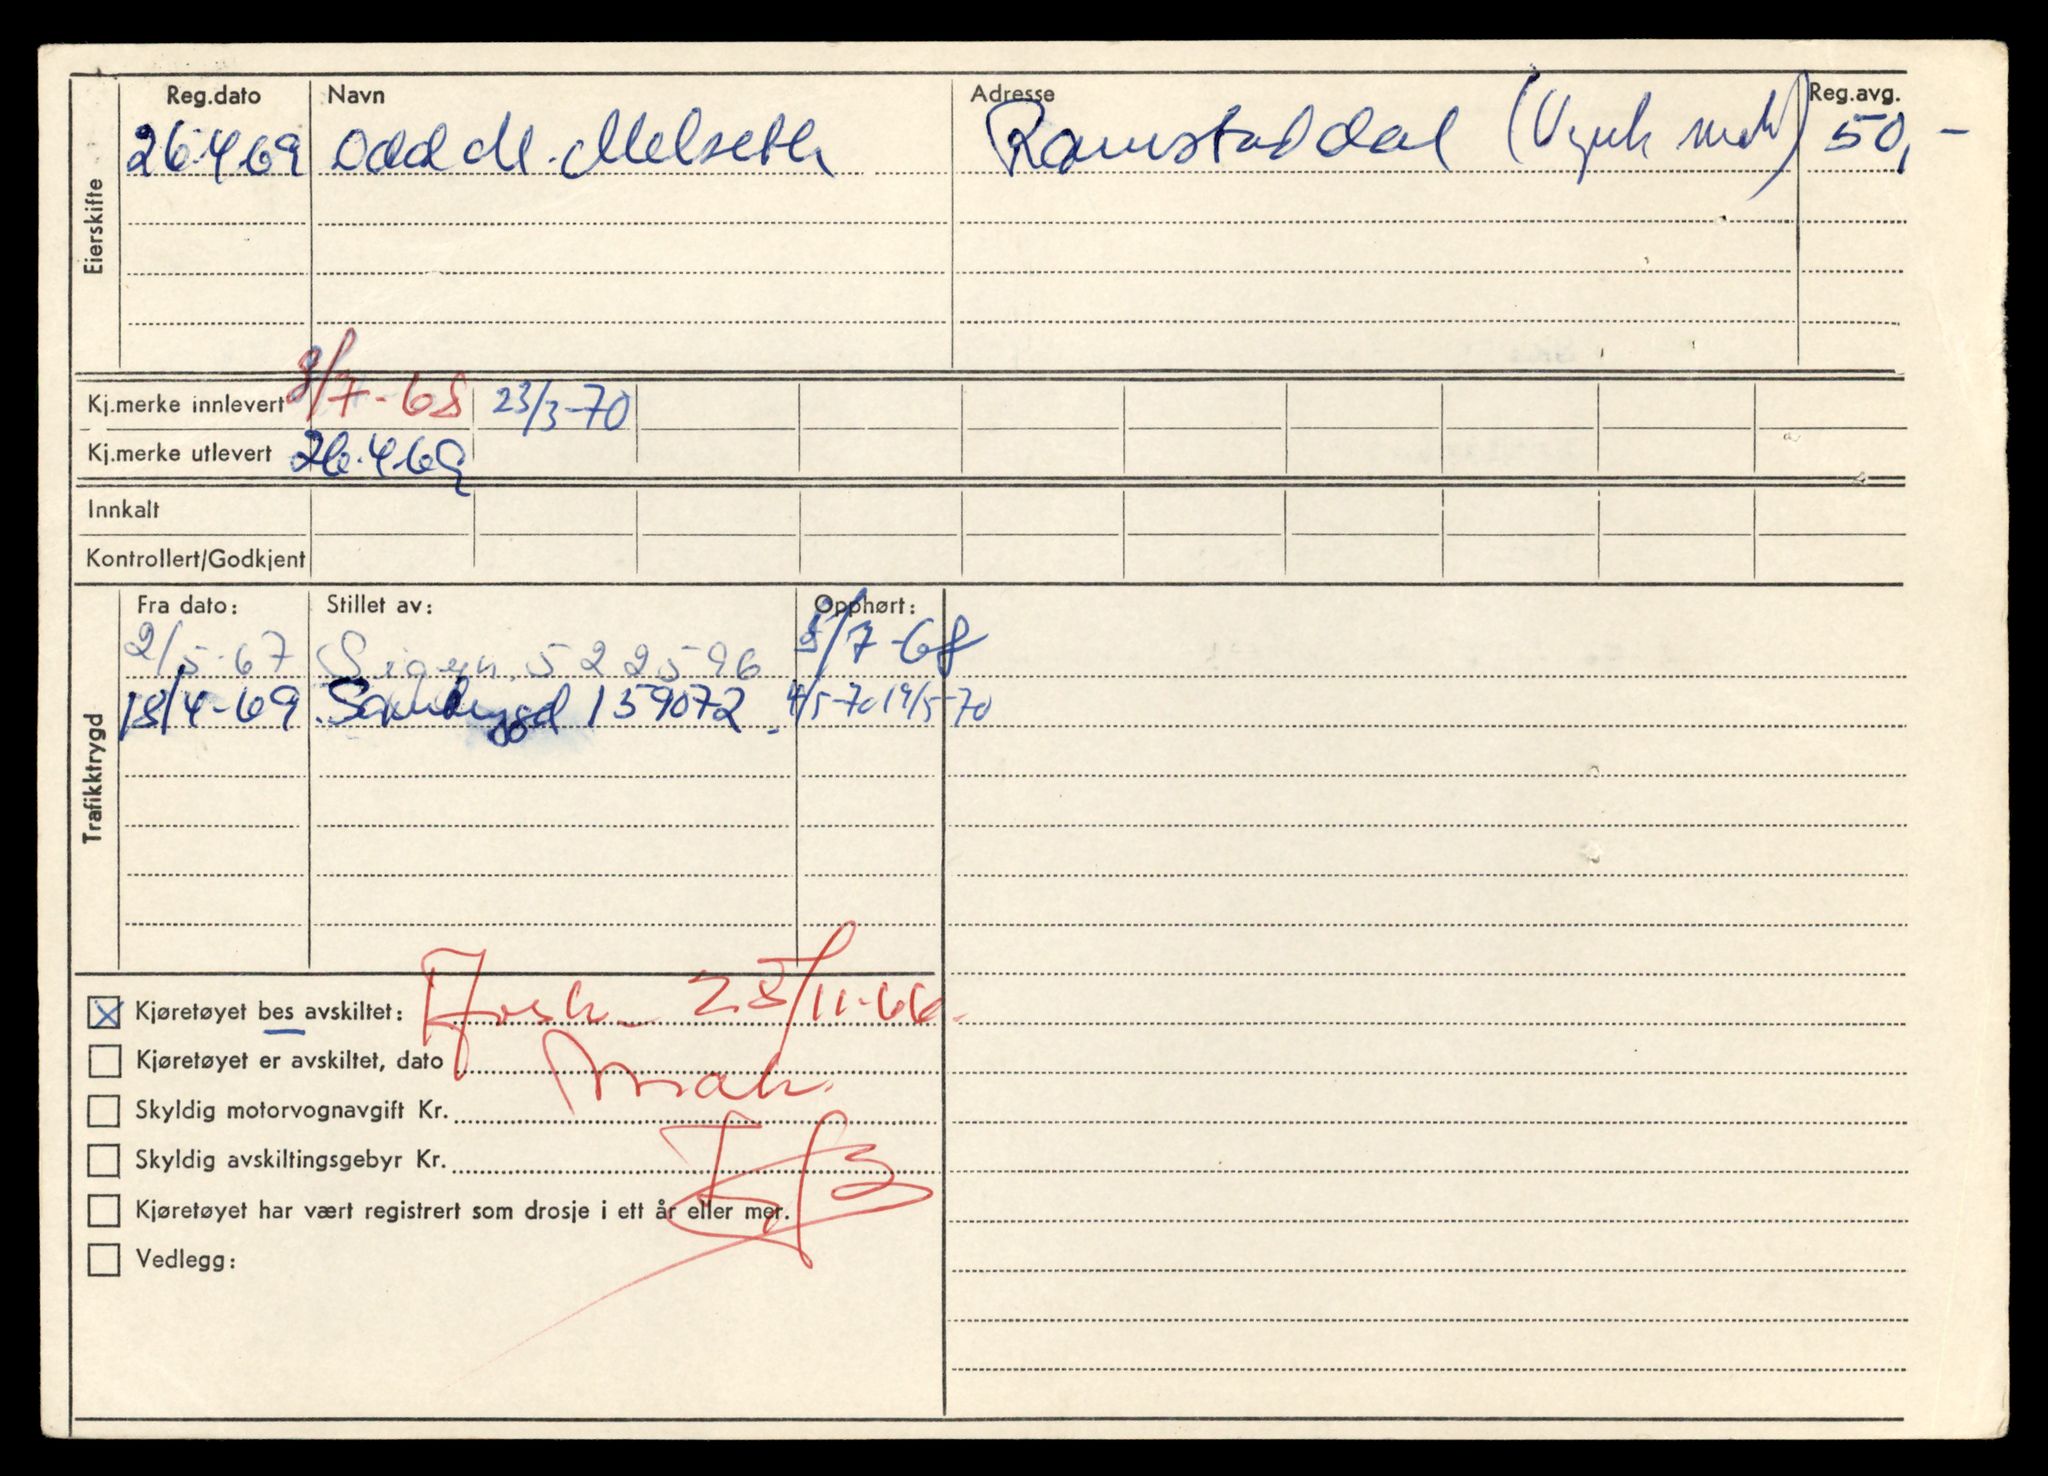 Eierskifte
Reg.dato Navn Adresse Reg.avg.
26.4.69 Odd M. Melseth Ramstaddal 50,-
Kj.merke innlevert 8/7-68 23/3-70
Kj.merke utlevert 26.4.69
Innkalt
Kontrollert/Godkjent
Trafikktrygd
Fra dato: Stillet av: Opphørt:
2/5-67 Sigyn. 522596 8/7-68
18/4-69 Samtrygd 159072. 4/5-70 19/5-70
Kjøretøyet bes avskiltet: 28/11-66.
Kjøretøyet er avskiltet, dato
Skyldig motorvognavgift Kr.
Skyldig avskiltingsgebyr Kr.
Kjøretøyet har vært registrert som drosje i ett år eller mer.
Vedlegg: